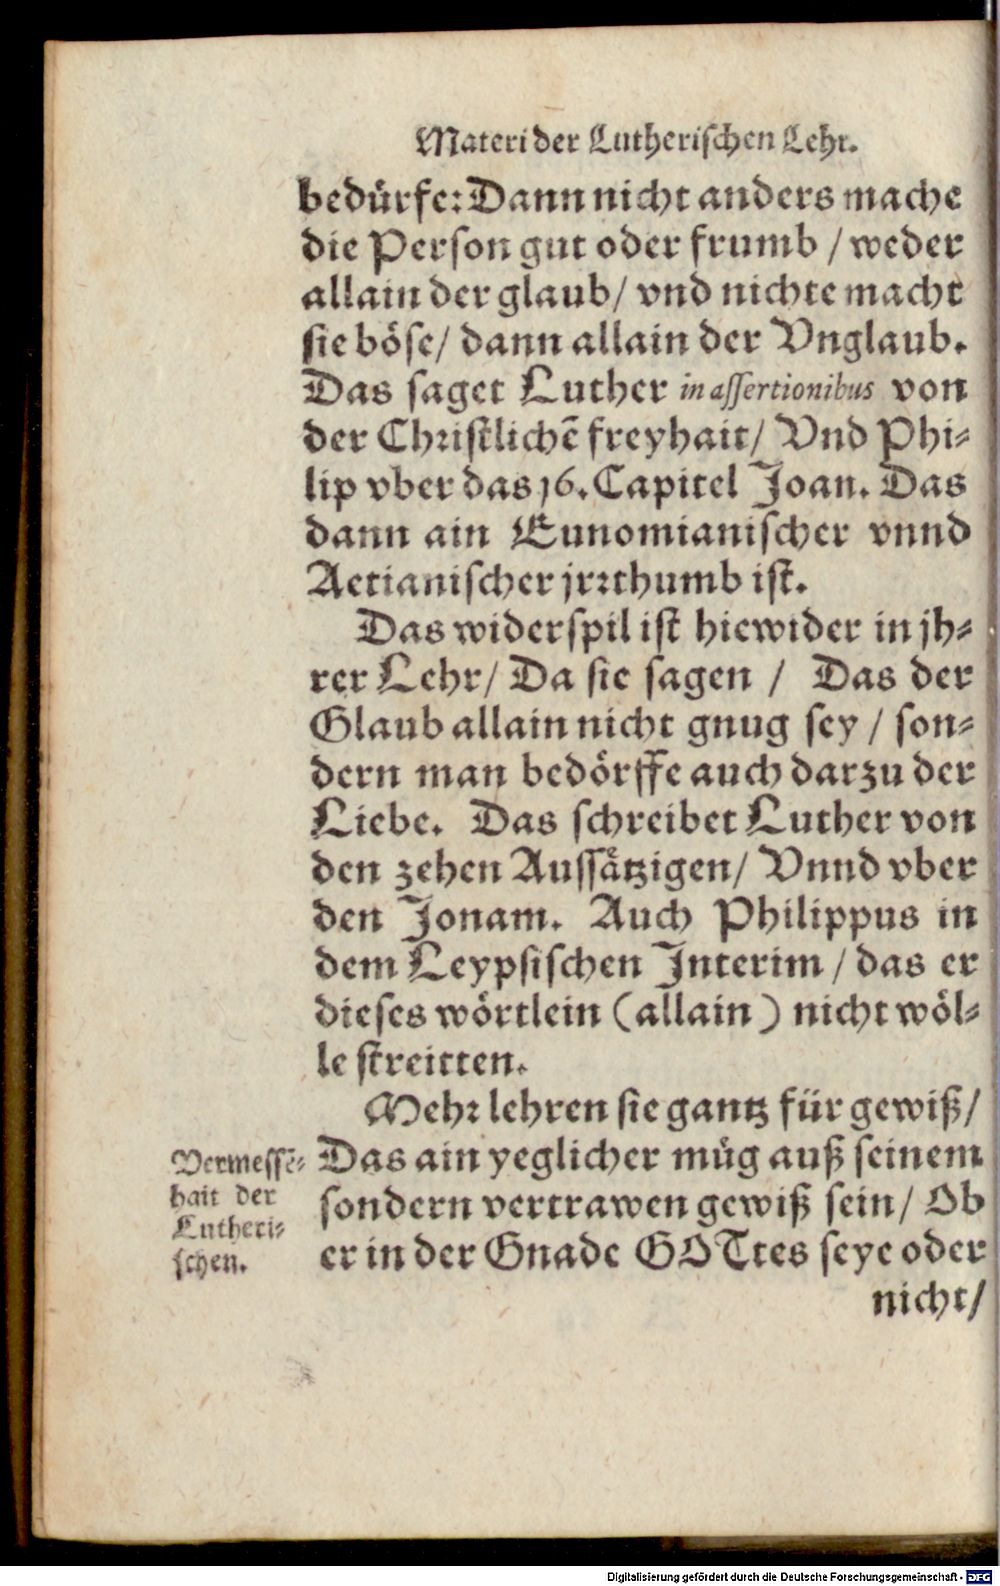 Materi der Lutherischen Lehr.
bedürfe: Dann nicht anders mache
die Person gut oder frumb / weder
allain der glaub/ vnd nichte macht
sie böse/ dann allain der Vnglaub.
Das saget Luther in assertionibus von
der Christlichē freyhait/ Vnd Phi-
lip vber das 16. Capitel Joan. Das
dann ain Eunomianischer vnnd
Aetianischer jrrthumb ist.
Das widerspil ist hiewider in jh-
rer Lehr/ Da sie sagen / Das der
Glaub allain nicht gnug sey / son-
dern man bedörffe auch darzu der
Liebe. Das schreibet Luther von
den zehen Aussätzigen/ Vnnd vber
den Jonam. Auch Philippus in
dem Leypsischen Interim / das er
dieses wörtlein (allain) nicht wöl-
le streitten.
Mehr lehren sie gantz für gewiß/
Vermessē-
hait der
Lutheri-
schen.
Das ain yeglicher müg auß seinem
sondern vertrawen gewiß sein/ Ob
er in der Gnade GOTtes seye oder
nicht/
Digitalisierung gefördert durch die Deutsche Forschungsgemeinschaft - DFG